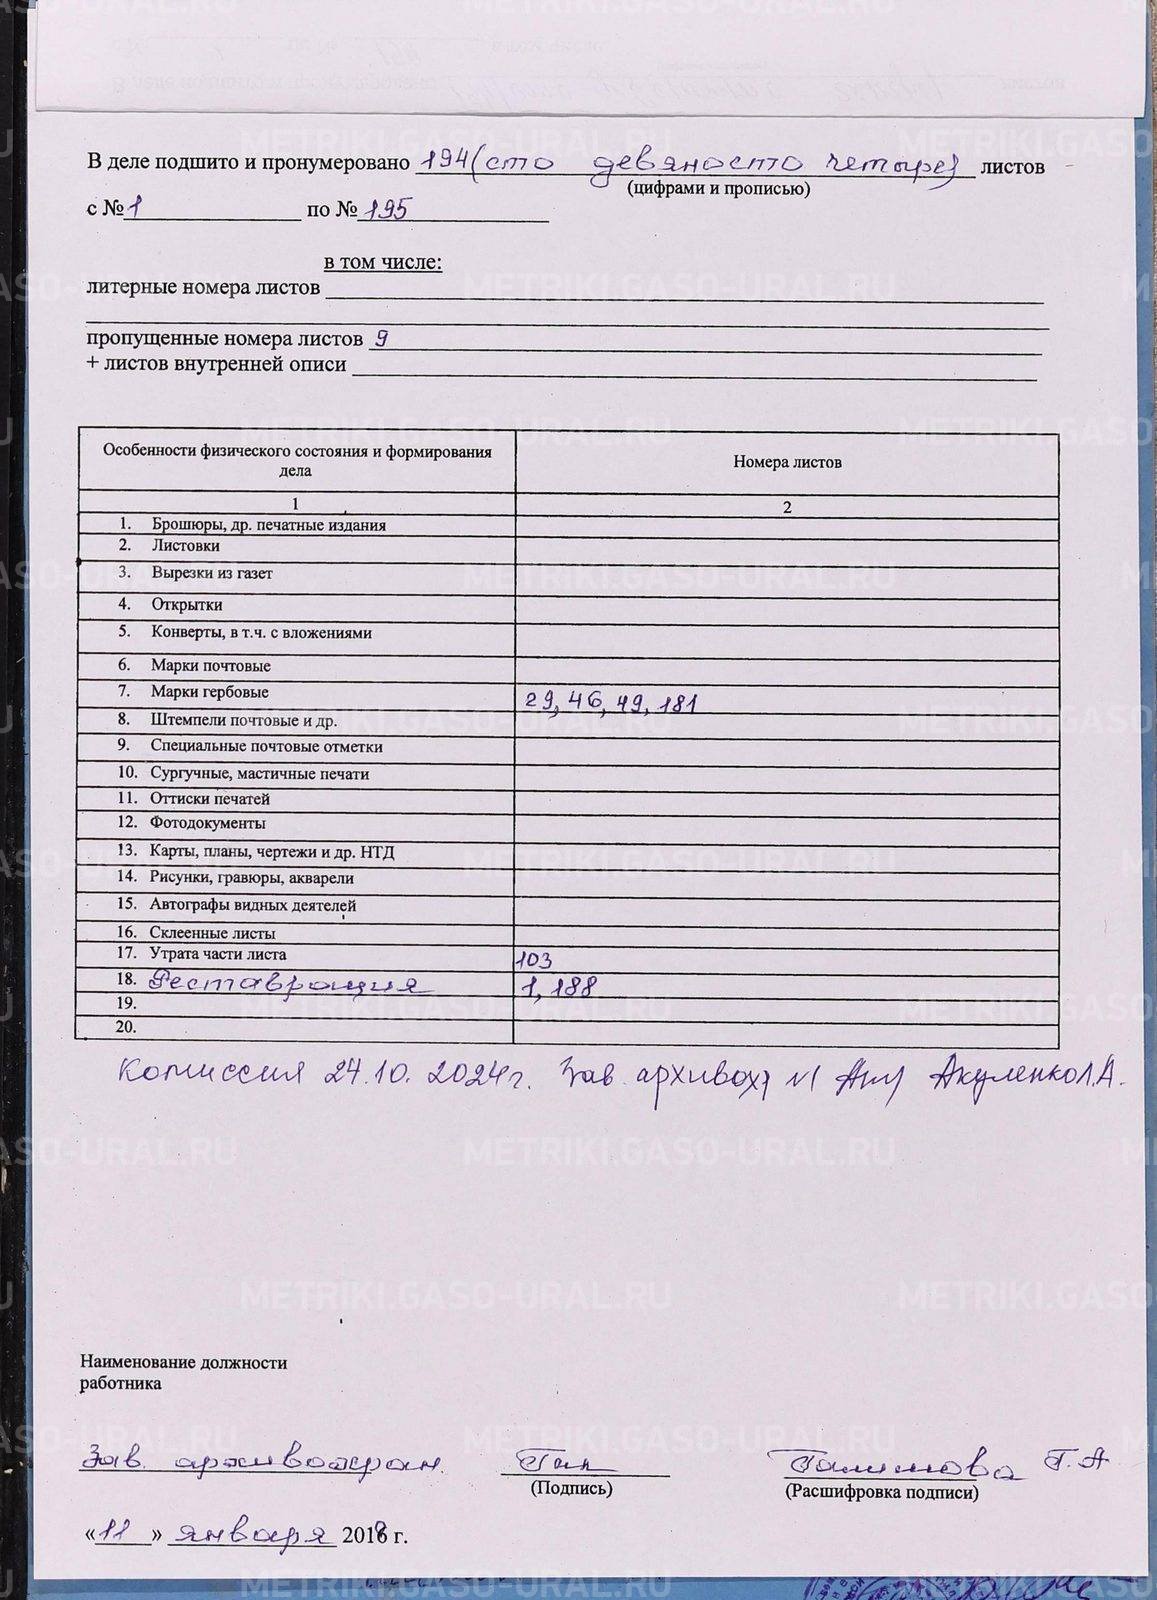 В деле подшито и пронумеровано 194 (сто девяносто четыре) листов
(цифрами и прописью)
с № 1 по № 195
в том числе:
литерные номера листов
пропущенные номера листов 9
+ листов внутренней описи
Особенности физического состояния и формирования дела Номера листов
1 2
1. Брошюры, др. печатные издания
2. Листовки
3. Вырезки из газет
4. Открытки
5. Конверты, в т.ч. с вложениями
6. Марки почтовые
7. Марки гербовые 29, 46, 49, 181
8. Штемпели почтовые и др.
9. Специальные почтовые отметки
10. Сургучные, мастичные печати
11. Оттиски печатей
12. Фотодокументы
13. Карты, планы, чертежи и др. НТД
14. Рисунки, гравюры, акварели
15. Автографы видных деятелей
16. Склеенные листы
17. Утрата части листа 103
18. Реставрация 1, 188
19.
20.
Комиссия 24.10.2024г. Зав. архивохр Акуленко Л.А.
Наименование должности
работника
Зав. архивохран. Гал Галимова Г.А
(Подпись) (Расшифровка подписи)
«11» января 2018 г.
METRIKI.GASO-URAL.RU